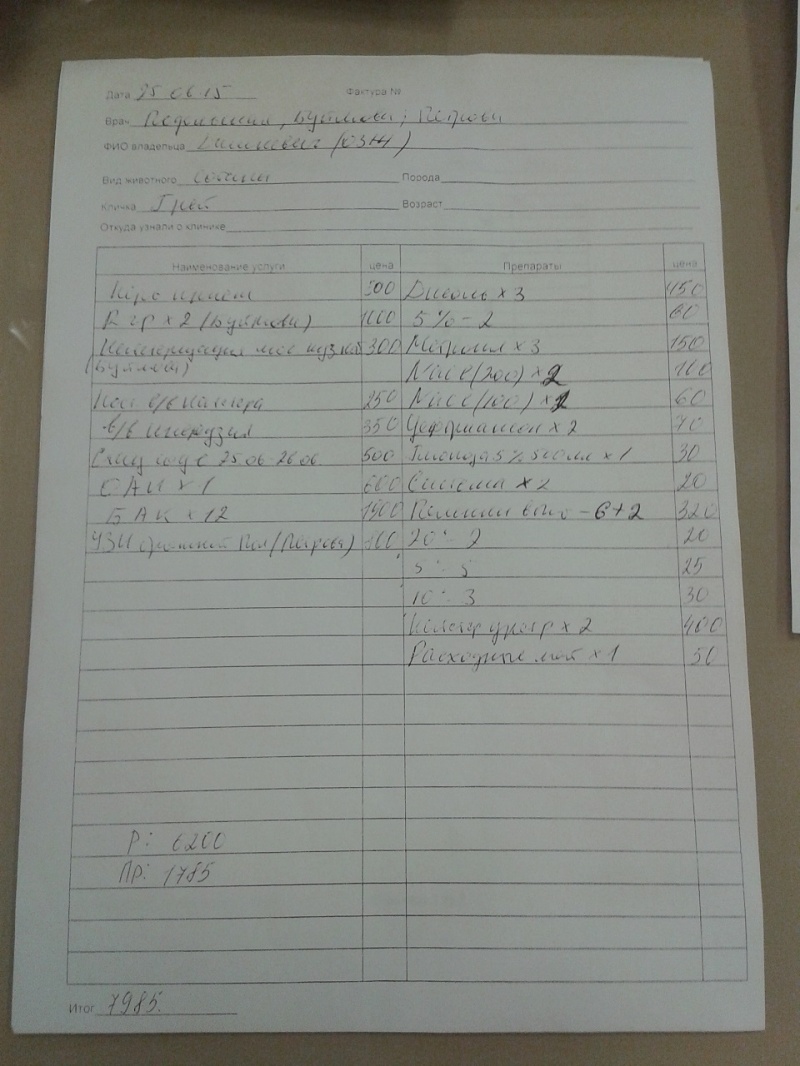 Дата 25 06.15 Фактура №
Врач
ФИО владельца (ОЗЖ)
Вид животного собака Порода
Кличка Грей Возраст
Откуда узнали о клинике
Наименование услуги цена Препараты цена
прием 300 х 3 450
R гр х 2 (Буйлова) 1000 5% - 2 60
Катетеризация моч пузыря 300 х 3 150
(Буйлова) NaCl (200) х 2
Пост. в/в катетера 250 NaCl (100) х 60
в/в инфузия 350 Цефтриаксон х 2 70
Стац содс 25 06-26 06 500 Глюкоза 5% 500мл х 1 30
ОАК х 1 600 Система х 2 20
БАК х 12 1900 - 6+2 320
УЗИ брюшной пол (Петрова) 20 - 2 20
5 - 5 25
10 - 3 30
Катетер уретр х 2 400
Расходные мат х 1 50
Р: 6200
ПР: 1785
Итог 7985.